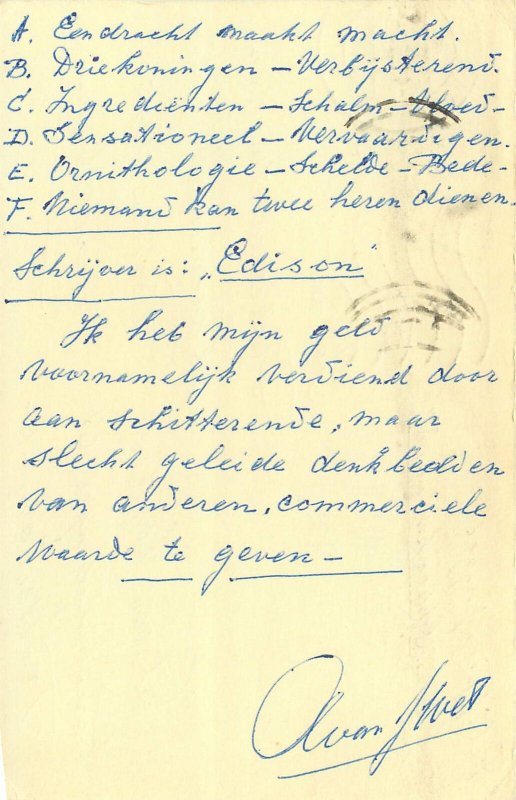 A. Eendracht maakt macht.
B. Driekoningen – Verbijsterend.
C. Ingrediënten – Schalm – Vloed –
D. Sensationeel – Vervaardigen.
E. Ornithologie – Schelde – Bede –
F. Niemand kan twee heren dienen.
Schrijver is: „Edison"
Ik heb mijn geld
voornamelijk verdiend door
aan schitterende, maar
slecht geleide denkbedden
van anderen, commerciele
waarde te geven –